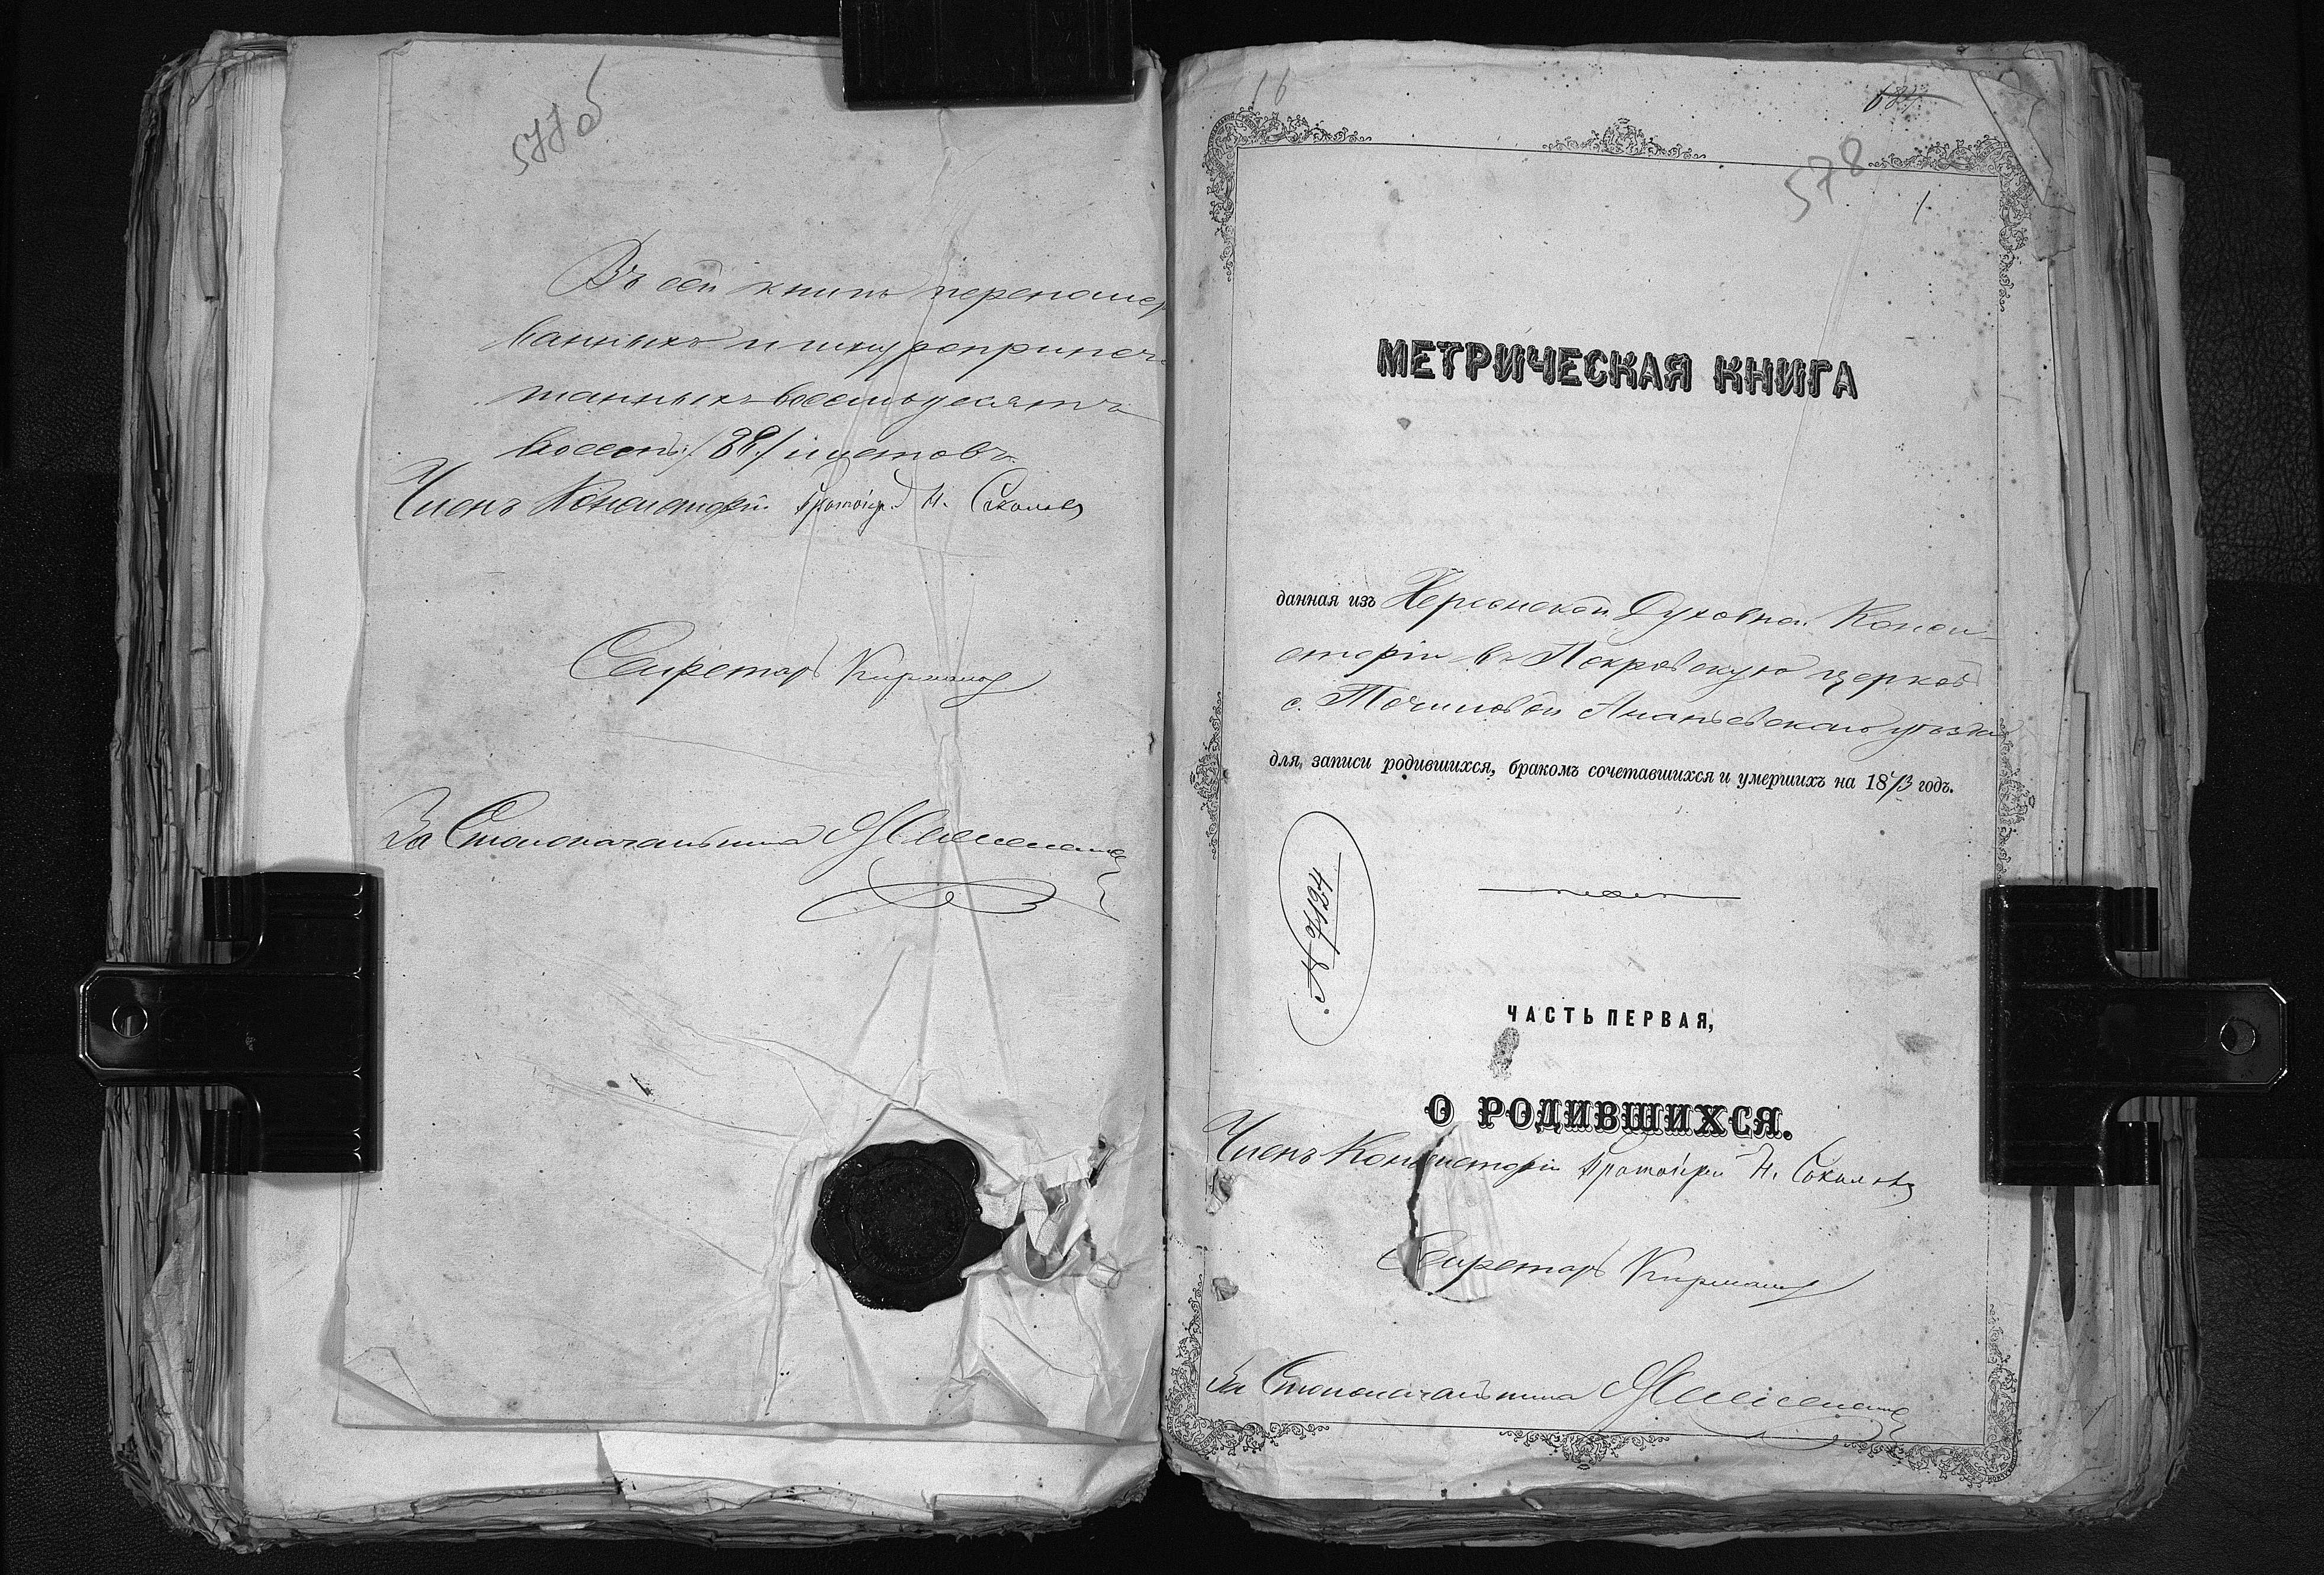 577 об
Въ сей книгѣ перенумеро
ванныхъ и шнуроприпеча
танныхъ восемьдесятъ
восемь /88/ листовъ
Членъ Консисторіи Протоіер. Н. Соколовъ
Секретарь
За Столоначальника
16
578
1
МЕТРИЧЕСКАЯ КНИГА
данная изъ Херсонской Духовной Конси-
сторіи въ Покровскую церковь
с. Точиловой Ананьевскаго уѣзда
для записи родившихся, бракомъ сочетавшихся и умершихъ на 1873 годъ.
№ 7124
ЧАСТЬ ПЕРВАЯ,
О РОДИВШИХСЯ.
Членъ Консисторіи Протоіерей Н. Соколовъ
Секретарь
За Столоначальника